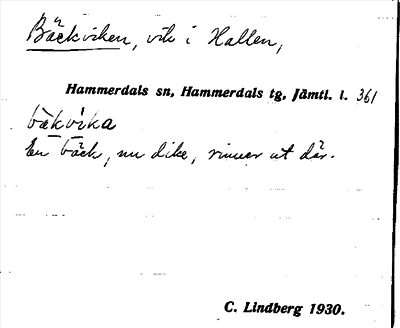 Bäckviken, vik i Hallen,
Hammerdals sn, Hammerdals tg, Jämtl. l. 361
bäkvika
En bäck, nu dike, rinner ut där.
C. Lindberg 1930.